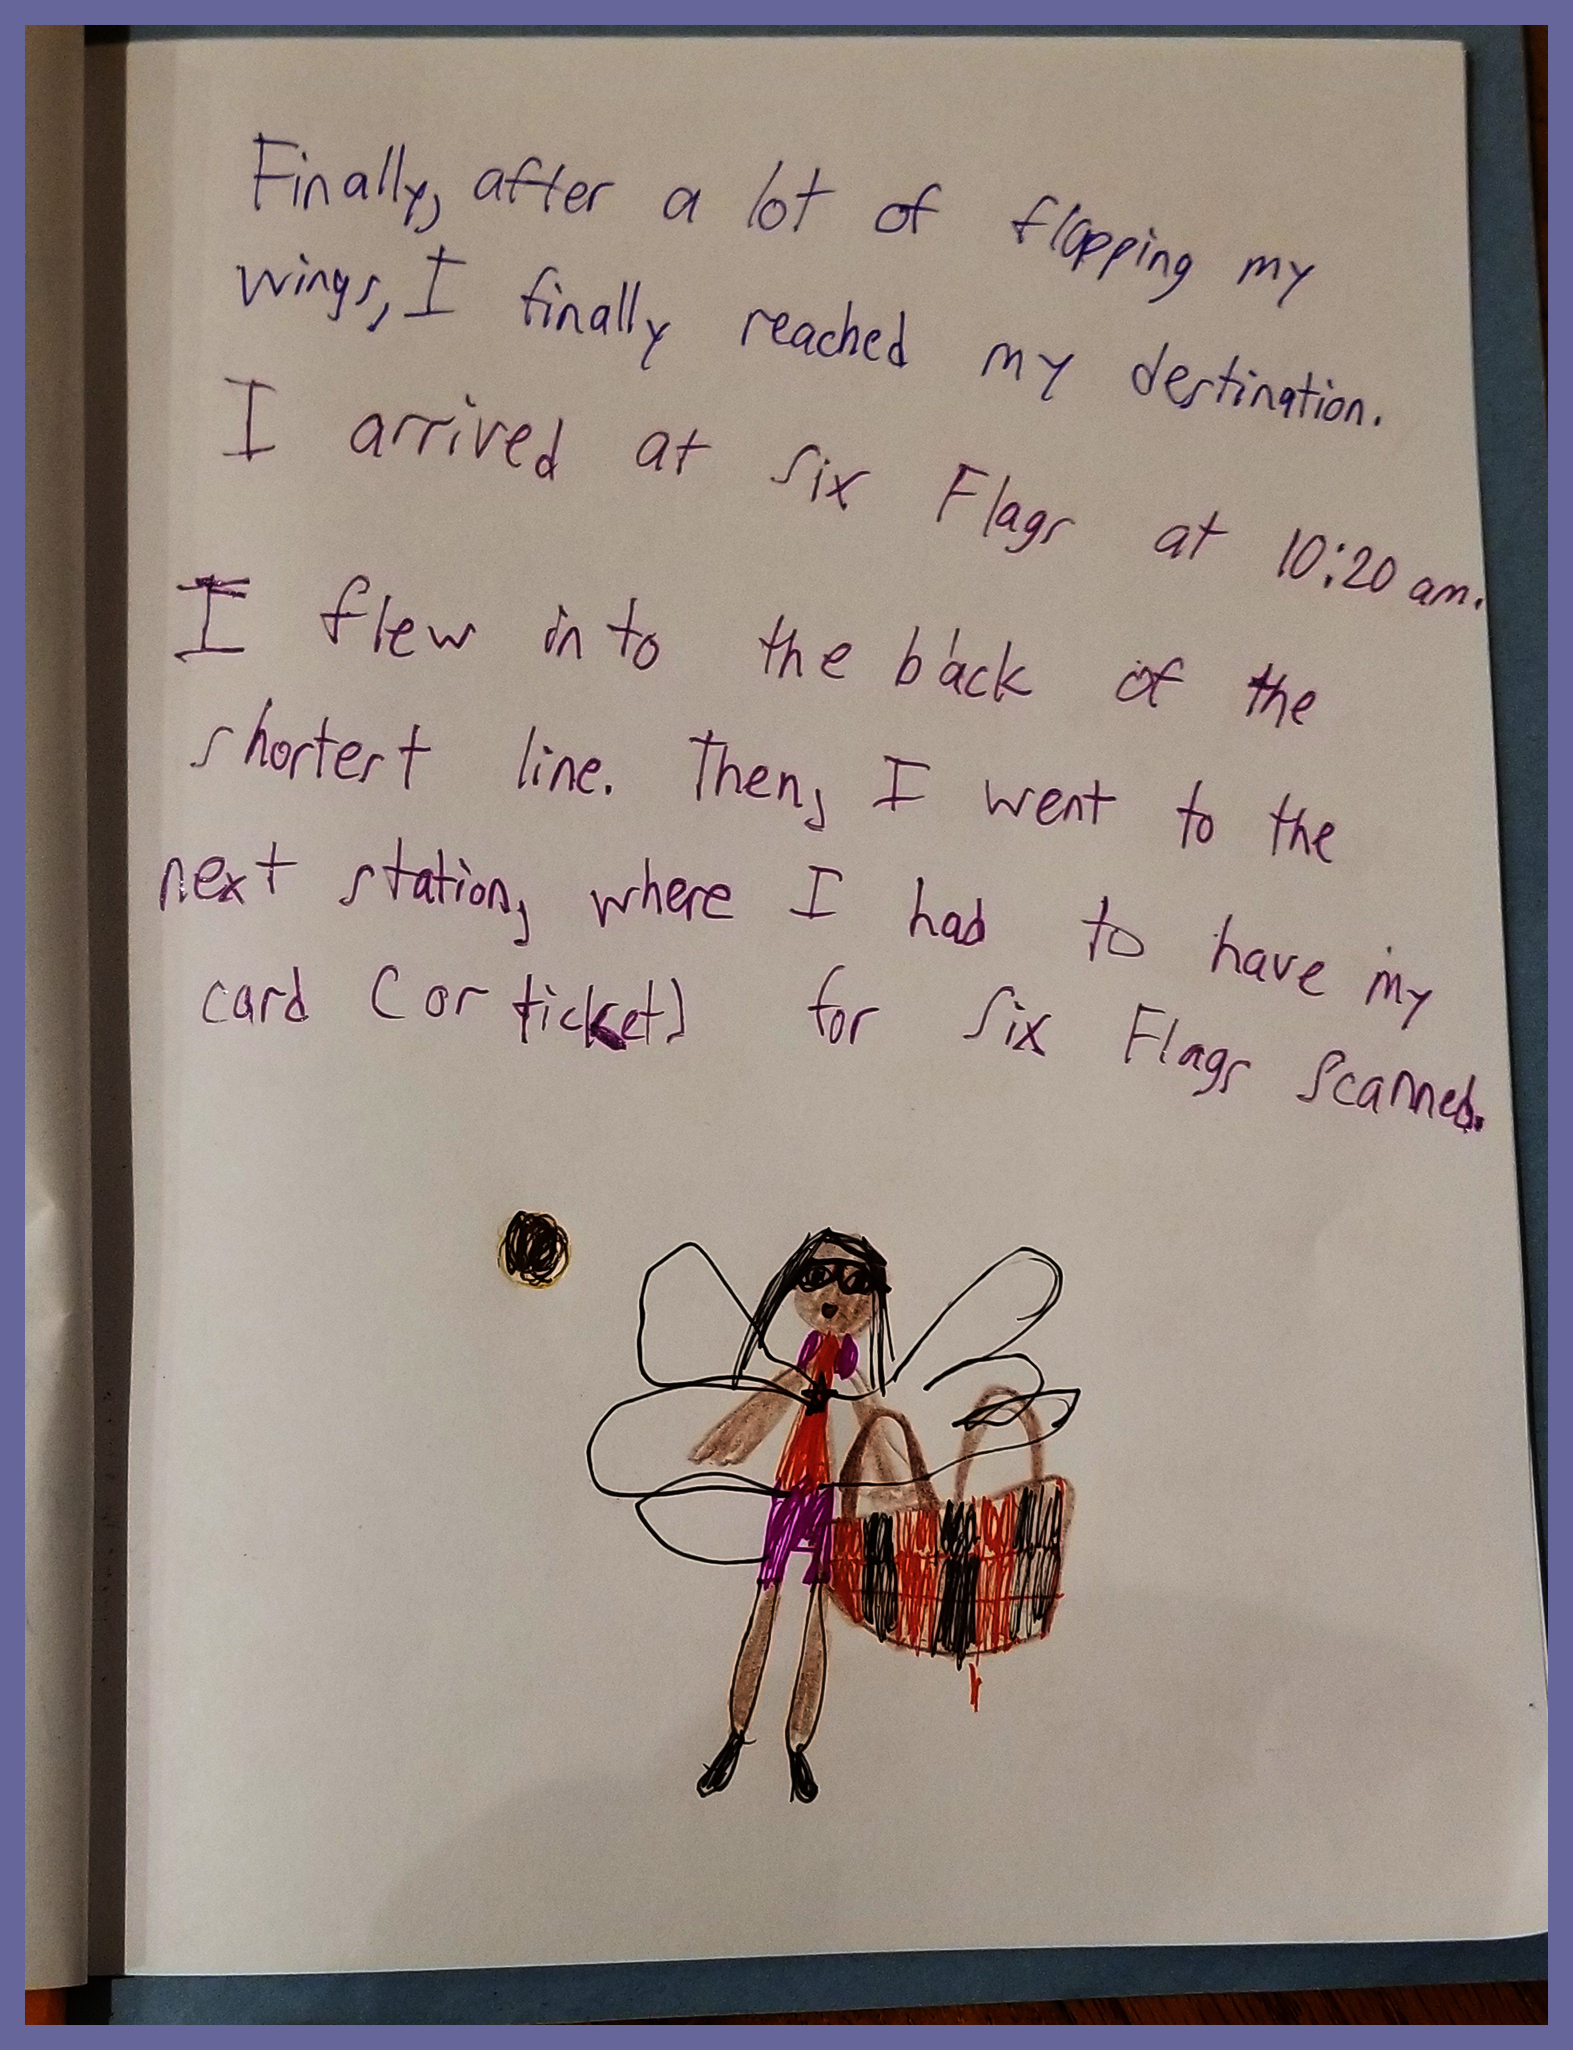 Finally, after a lot of flapping my
wings, I finally reached my destination.
I arrived at Six Flags at 10:20 am.
I flew into the back of the
shortest line. Then, I went to the
next station, where I had to have my
card (or ticket) for Six Flags scanned.